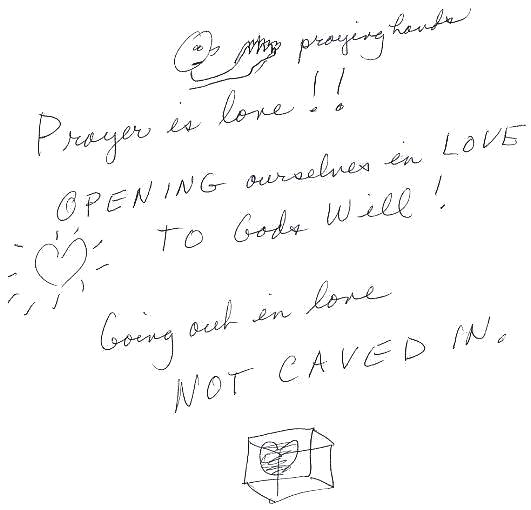 praying hands
Prayer is love!!
OPENING ourselves in LOVE
TO Gods Will!
Going out in love
NOT CAVED IN.